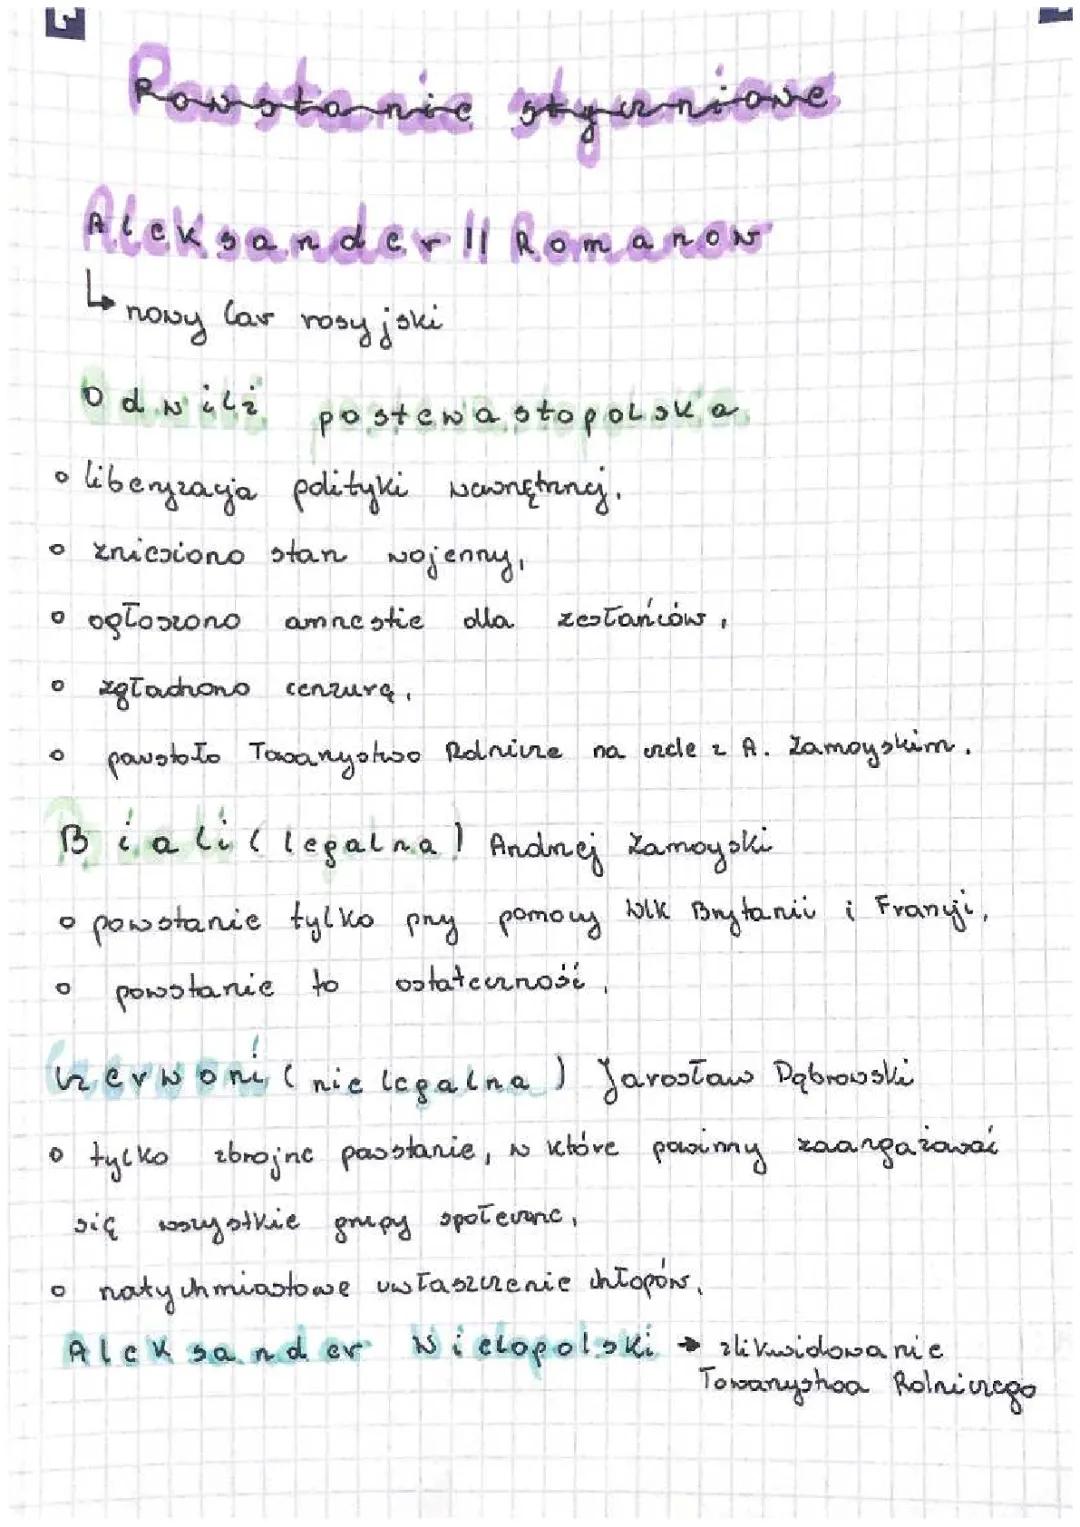 Powstanie styczniowe
Aleksander II Romanow
↳ nowy car rosyjski
Odwilż postewastopolska
• liberyzacja polityki wewnętrznej,
• zniesiono stan wojenny,
• ogłoszono amnestie dla zesłańców,
• zgładzono cenzurę,
• powstało Towarzystwo Rolnicze na czele z A. Zamoyskim.
Biali (legalna) Andrzej Zamoyski
• powstanie tylko przy pomocy Wlk Brytanii i Francji,
• powstanie to ostateczność,
Czerwoni (nie legalna) Jarosław Dąbrowski
• tylko zbrojne powstanie, w które powinny zaangażować
się wszystkie grupy społeczne,
• natychmiastowe uwłaszczenie chłopów,
Aleksander Wielopolski → zlikwidowanie
Towarzystwa Rolniczego